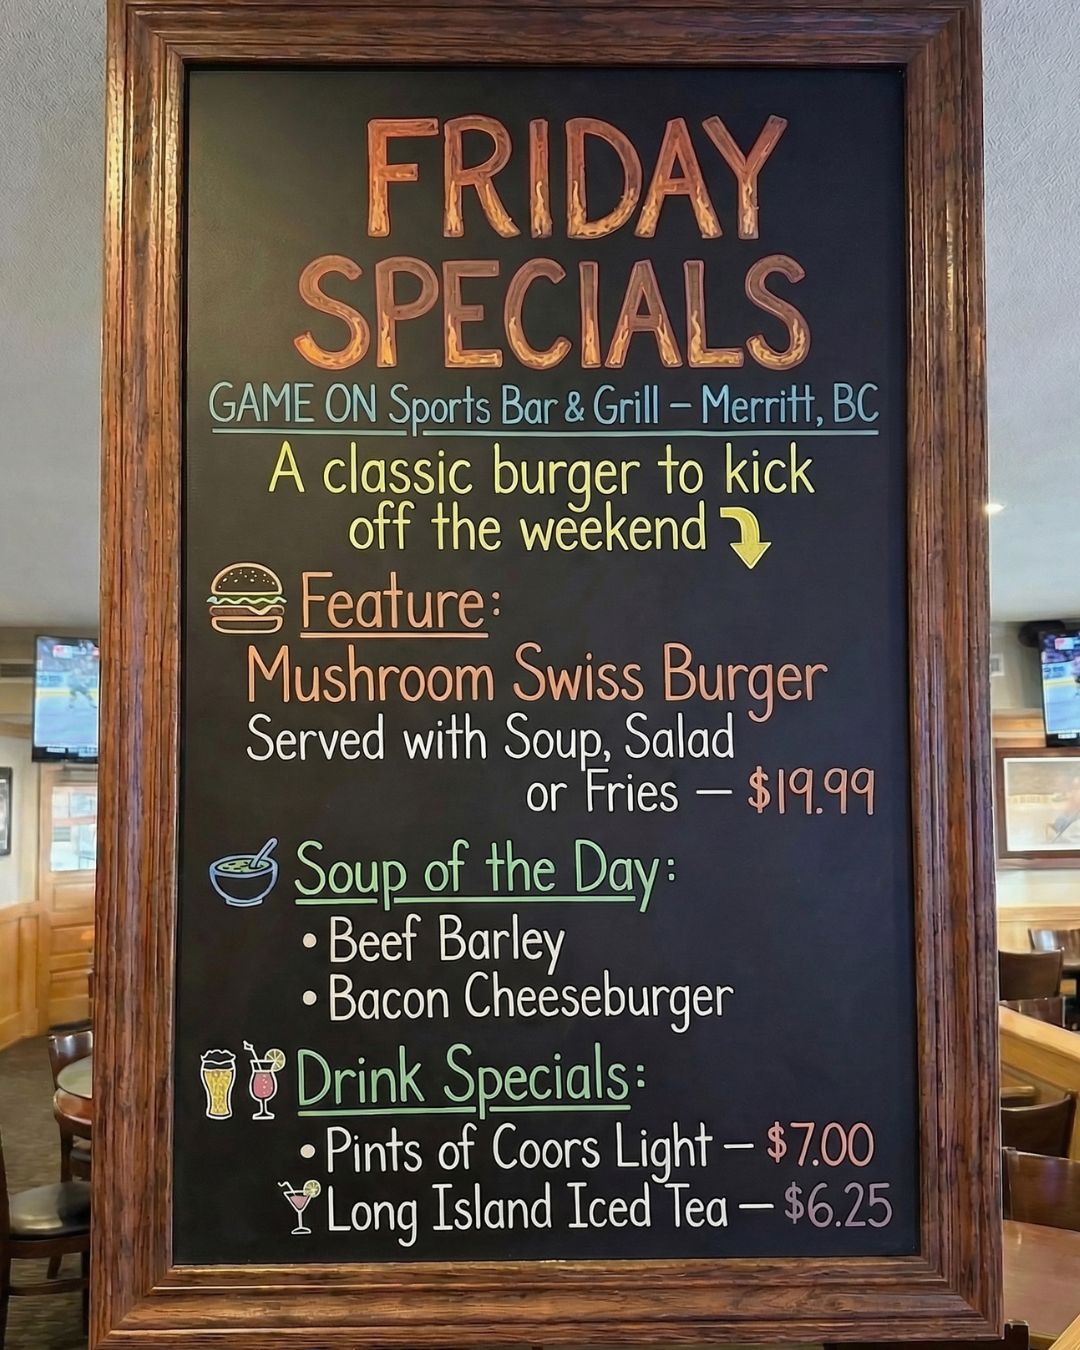 FRIDAY
SPECIALS
GAME ON Sports Bar & Grill – Merritt, BC
A classic burger to kick
off the weekend
Feature:
Mushroom Swiss Burger
Served with Soup, Salad
or Fries – $19.99
Soup of the Day:
• Beef Barley
• Bacon Cheeseburger
Drink Specials:
• Pints of Coors Light – $7.00
Long Island Iced Tea – $6.25